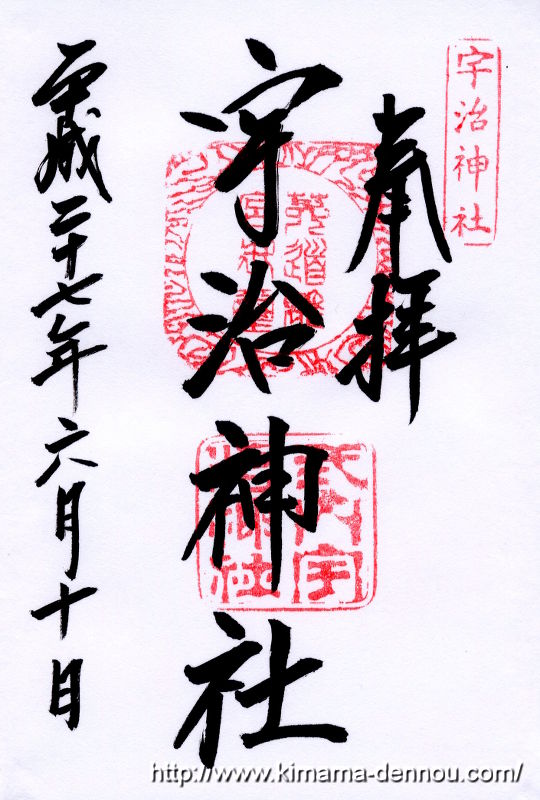 宇治神社
奉拝
宇治神社
平成二十七年六月十日
http://www.kimama-dennou.com/